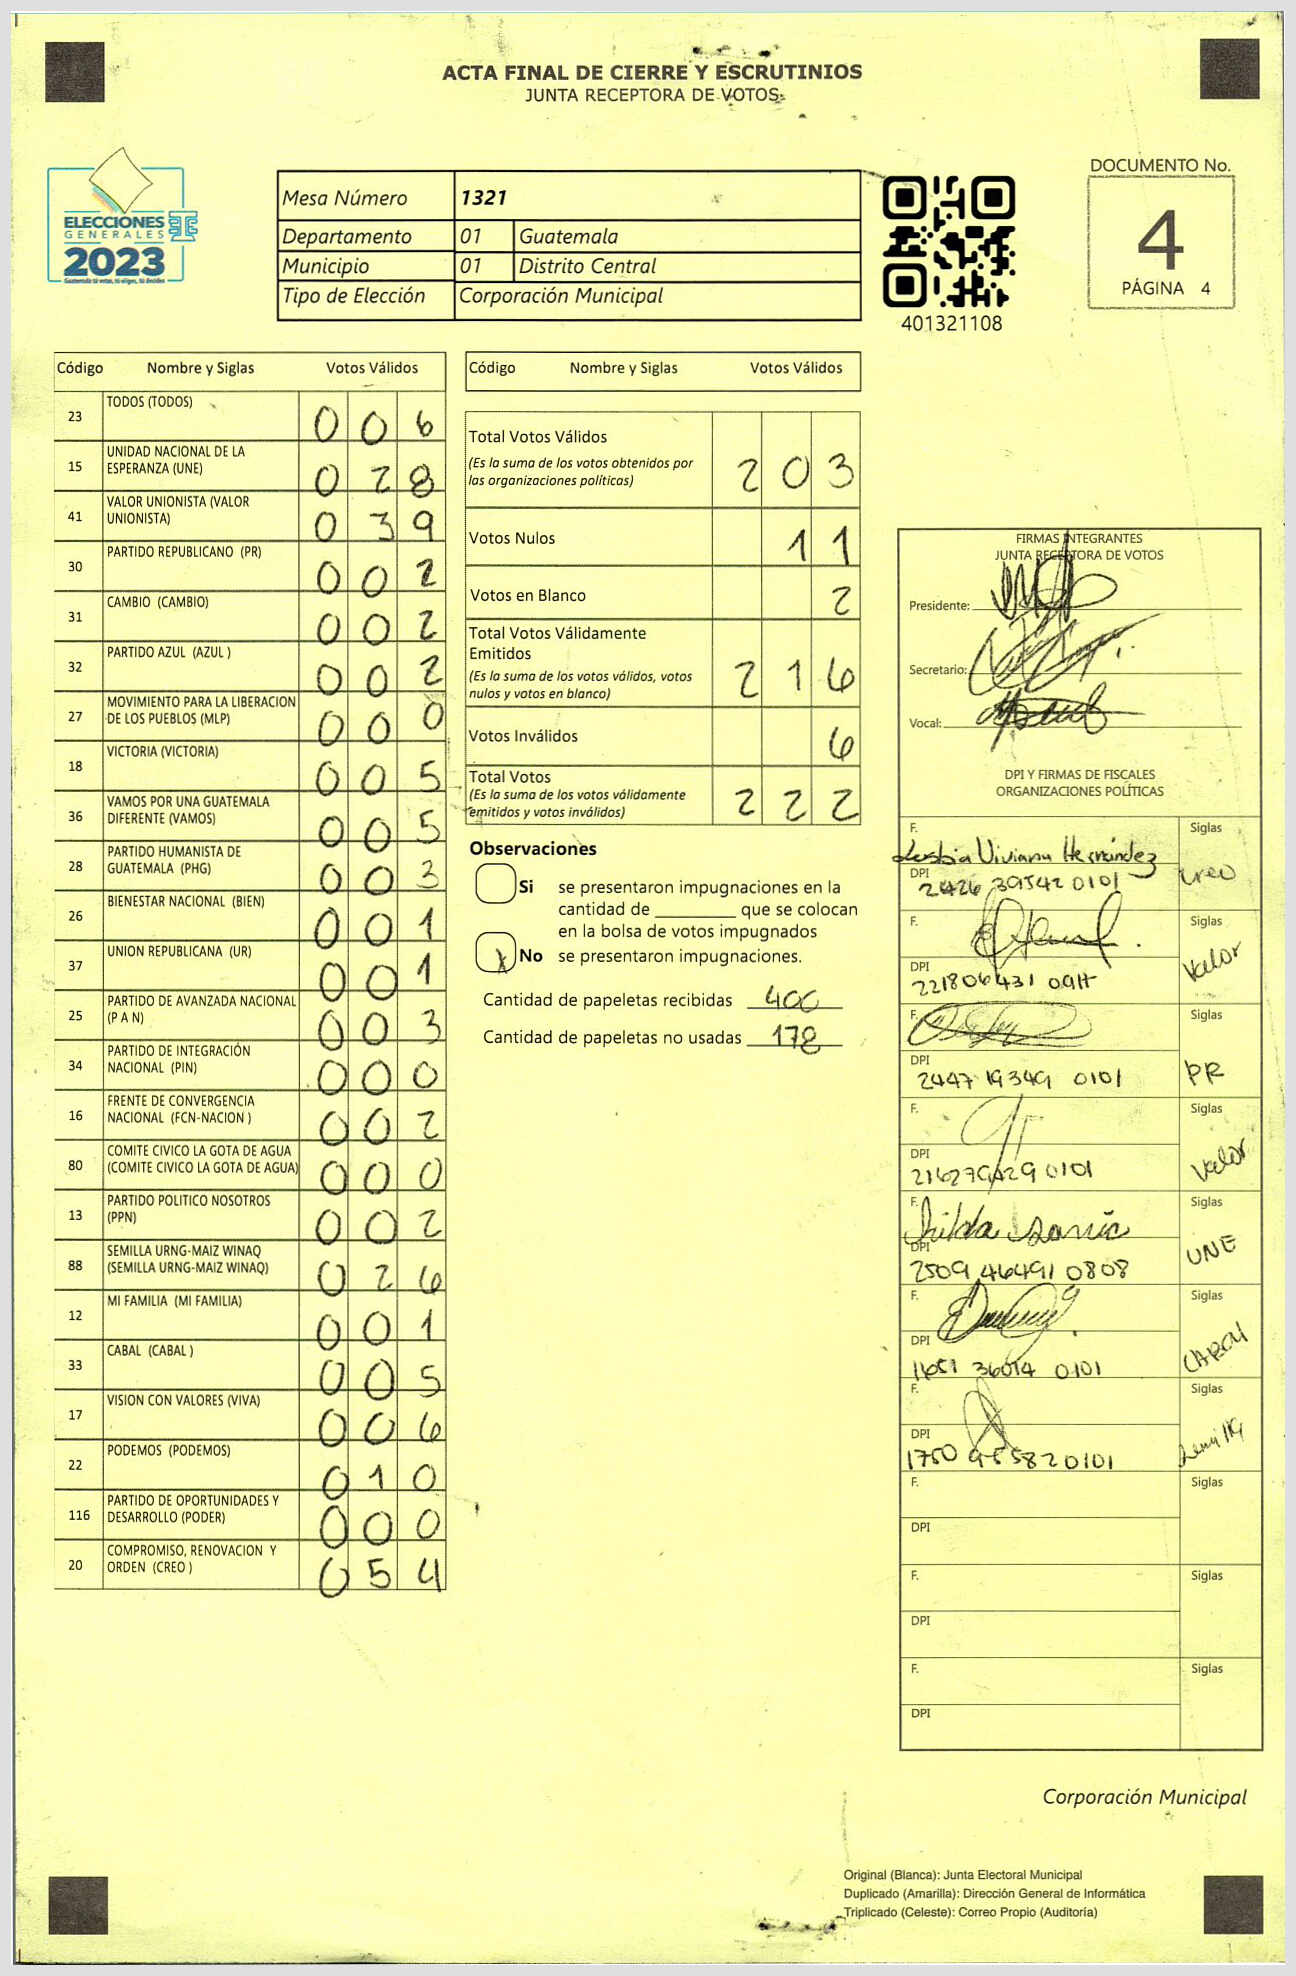 ACTA FINAL DE CIERRE Y ESCRUTINIOS
JUNTA RECEPTORA DE VOTOS
ELECCIONES
GENERALES
2023
Guatemala tú votas, tú eliges, tú decides
Mesa Número 1321
Departamento 01 Guatemala
Municipio 01 Distrito Central
Tipo de Elección Corporación Municipal
401321108
DOCUMENTO No.
4
PÁGINA 4
Código Nombre y Siglas Votos Válidos
23 TODOS (TODOS) 0 0 6
15 UNIDAD NACIONAL DE LA
ESPERANZA (UNE) 0 2 8
41 VALOR UNIONISTA (VALOR
UNIONISTA) 0 3 9
30 PARTIDO REPUBLICANO (PR) 0 0 2
31 CAMBIO (CAMBIO) 0 0 2
32 PARTIDO AZUL (AZUL ) 0 0 2
27 MOVIMIENTO PARA LA LIBERACION
DE LOS PUEBLOS (MLP) 0 0 0
18 VICTORIA (VICTORIA) 0 0 5
36 VAMOS POR UNA GUATEMALA
DIFERENTE (VAMOS) 0 0 5
28 PARTIDO HUMANISTA DE
GUATEMALA (PHG) 0 0 3
26 BIENESTAR NACIONAL (BIEN) 0 0 1
37 UNION REPUBLICANA (UR) 0 0 1
25 PARTIDO DE AVANZADA NACIONAL
(P A N) 0 0 3
34 PARTIDO DE INTEGRACIÓN
NACIONAL (PIN) 0 0 0
16 FRENTE DE CONVERGENCIA
NACIONAL (FCN-NACION ) 0 0 2
80 COMITE CIVICO LA GOTA DE AGUA
(COMITE CIVICO LA GOTA DE AGUA) 0 0 0
13 PARTIDO POLITICO NOSOTROS
(PPN) 0 0 2
88 SEMILLA URNG-MAIZ WINAQ
(SEMILLA URNG-MAIZ WINAQ) 0 2 6
12 MI FAMILIA (MI FAMILIA) 0 0 1
33 CABAL (CABAL ) 0 0 5
17 VISION CON VALORES (VIVA) 0 0 6
22 PODEMOS (PODEMOS) 0 1 0
116 PARTIDO DE OPORTUNIDADES Y
DESARROLLO (PODER) 0 0 0
20 COMPROMISO, RENOVACION Y
ORDEN (CREO ) 0 5 4
Código Nombre y Siglas Votos Válidos
Total Votos Válidos
(Es la suma de los votos obtenidos por
las organizaciones políticas) 2 0 3
Votos Nulos 1 1
Votos en Blanco 2
Total Votos Válidamente
Emitidos
(Es la suma de los votos válidos, votos
nulos y votos en blanco) 2 1 6
Votos Inválidos 6
Total Votos
(Es la suma de los votos válidamente
emitidos y votos inválidos) 2 2 2
Observaciones
Si se presentaron impugnaciones en la
cantidad de ________ que se colocan
en la bolsa de votos impugnados
X No se presentaron impugnaciones.
Cantidad de papeletas recibidas 400
Cantidad de papeletas no usadas 178
FIRMAS INTEGRANTES
JUNTA RECEPTORA DE VOTOS
Presidente:
Secretario:
Vocal:
DPI Y FIRMAS DE FISCALES
ORGANIZACIONES POLÍTICAS
F. Siglas
Lesbia Viviana Hernández
DPI Creo
2426 39542 0101
F. Siglas
DPI Valor
F. Siglas
DPI PR
2447 19349 0101
F. Siglas
DPI Valor
F. Siglas
DPI UNE
2509 46491 0808
F. Siglas
DPI
F. Siglas
DPI
F. Siglas
DPI
F. Siglas
DPI
F. Siglas
DPI
Corporación Municipal
Original (Blanca): Junta Electoral Municipal
Duplicado (Amarilla): Dirección General de Informática
Triplicado (Celeste): Correo Propio (Auditoría)